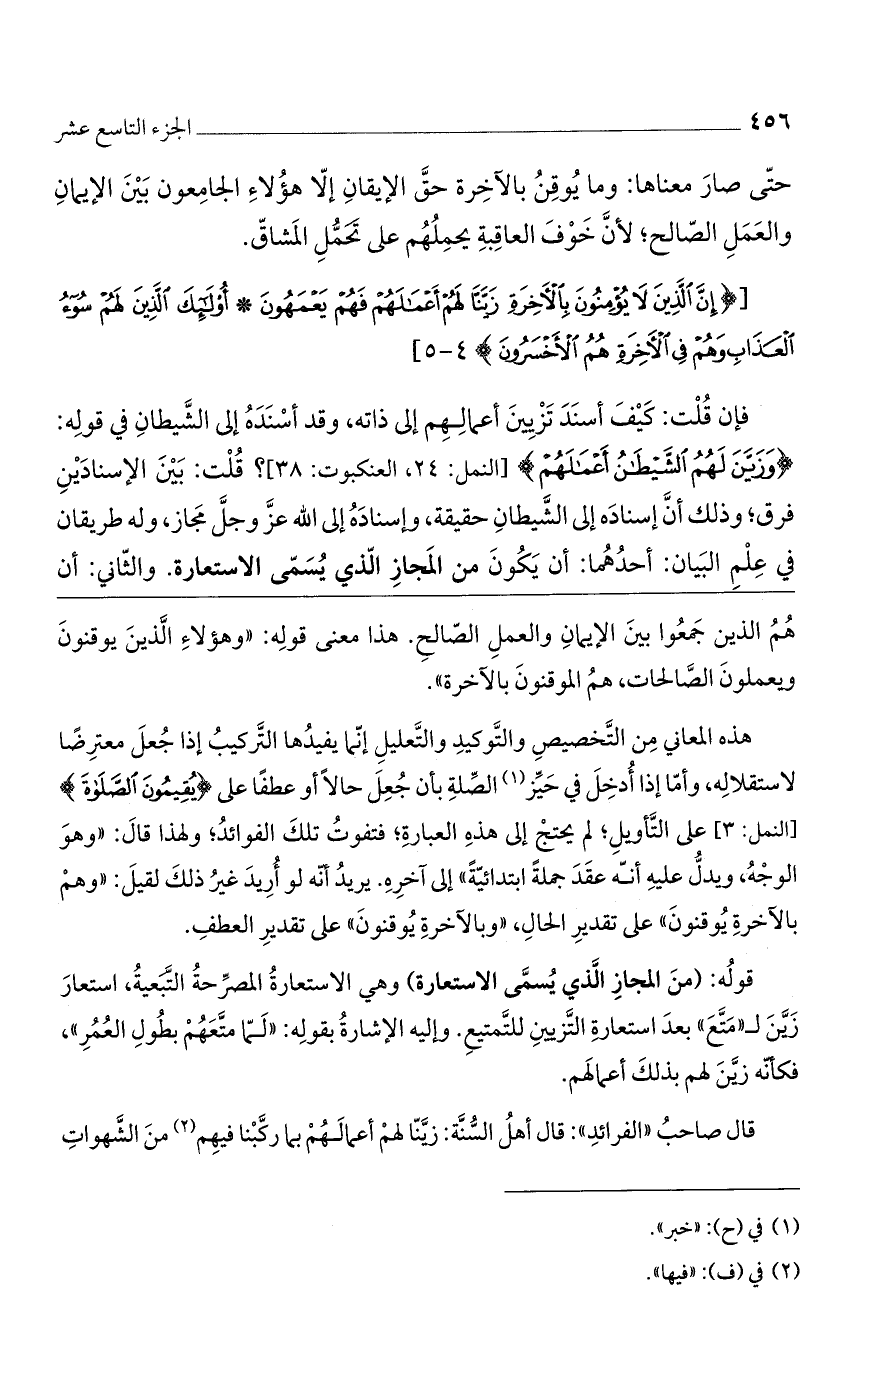 ٤٥٦ ــــــــــــــــــــــــــــــــ الجزء التاسع عشر
حتّى صارَ معناها: وما يُوقِنُ بالآخِرة حقَّ الإيقانِ إلّا هؤُلاءِ الجامِعون بَيْنَ الإيمانِ
والعَمَلِ الصّالح؛ لأنَّ خَوْفَ العاقِبةِ يحمِلُهُم على تَحَمُّلِ المَشاقّ.
[﴿إِنَّ ٱلَّذِينَ لَا يُؤْمِنُونَ بِٱلْأَخِرَةِ زَيَّنَّا لَهُمْ أَعْمَـٰلَهُمْ فَهُمْ يَعْمَهُونَ * أُوْلَـٰٓئِكَ ٱلَّذِينَ لَهُمْ سُوٓءُ
ٱلْعَذَابِ وَهُمْ فِى ٱلْأَخِرَةِ هُمُ ٱلْأَخْسَرُونَ﴾ ٤-٥]
فإن قُلْت: كَيْفَ أسنَدَ تَزْيِينَ أعمالِـهِم إلى ذاته، وقد أسْنَدَهُ إلى الشَّيطانِ في قولِه:
﴿وَزَيَّنَ لَهُمُ ٱلشَّيْطَـٰنُ أَعْمَـٰلَهُمْ﴾ [النمل: ٢٤، العنكبوت: ٣٨]؟ قُلْت: بَيْنَ الإسنادَيْنِ
فرق؛ وذلك أنَّ إسنادَه إلى الشَّيطانِ حقيقة، وإسنادَهُ إلى الله عزَّ وجلَّ مَجاز، وله طريقان
في عِلْمِ البَيان: أحدُهُما: أن يَكُونَ من المَجازِ الّذي يُسَمّى الاستعارة. والثّاني: أن
هُمُ الذين جَمَعُوا بينَ الإيمانِ والعملِ الصّالحِ. هذا معنى قولِه: «وهؤلاءِ الَّذينَ يوقنونَ
ويعملونَ الصَّالحات، همُ الموقنونَ بالآخرة».
هذه المعاني مِن التَّخصيصِ والتَّوكيدِ والتَّعليلِ إنّما يفيدُها التَّركيبُ إذا جُعلَ معترِضًا
لاستقلالِه، وأمّا إذا أُدخِلَ في حَيِّزِ(١) الصِّلةِ بأن جُعِلَ حالاً أو عطفًا على ﴿يُقِيمُونَ ٱلصَّلَوٰةَ﴾
[النمل: ٣] على التَّأويلِ؛ لم يحتجْ إلى هذهِ العبارةِ؛ فتفوتُ تلكَ الفوائدُ؛ ولهذا قالَ: «وهوَ
الوجْهُ، ويدلُّ عليهِ أنـّه عقَدَ جملةً ابتدائيّةً» إلى آخرِه. يريدُ أنّه لو أُرِيدَ غيرُ ذلكَ لقيلَ: «وهمْ
بالآخرةِ يُوقنونَ» على تقديرِ الحالِ، «وبالآخرةِ يُوقنونَ» على تقديرِ العطفِ.
قولُه: (منَ المجازِ الَّذي يُسمَّى الاستعارة) وهي الاستعارةُ المصرِّحةُ التَّبَعيةُ، استعارَ
زَيَّنَ لـ«مَتَّعَ» بعدَ استعارةِ التَّزيينِ للتَّمتيعِ. وإليه الإشارةُ بقولِه: «لَـمّا متَّعَهُمْ بطُولِ العُمُرِ»،
فكأنّه زيَّنَ لهم بذلكَ أعمالَهم.
قال صاحبُ «الفرائدِ»: قال أهلُ السُّنَّة: زيَّنّا لهمْ أعمالَـهُمْ بما ركَّبْنا فيهِم(٢) منَ الشَّهواتِ
(١) في (ح): «خبر».
(٢) في (ف): «فيها».